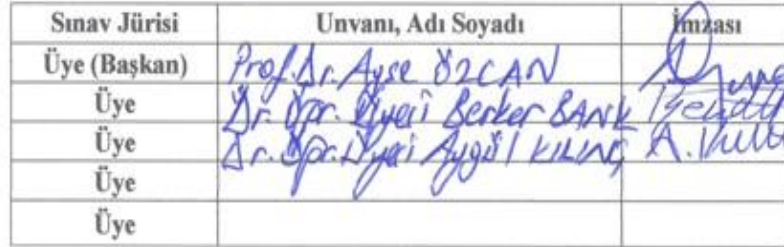 Sınav Jürisi Unvanı, Adı Soyadı İmzası
Üye (Başkan) Prof. Dr. Ayşe ÖZCAN
Üye Dr. Öğr. Üyesi Berker BANK
Üye Dr. Öğr. Üyesi Aygül KILINÇ
Üye
Üye